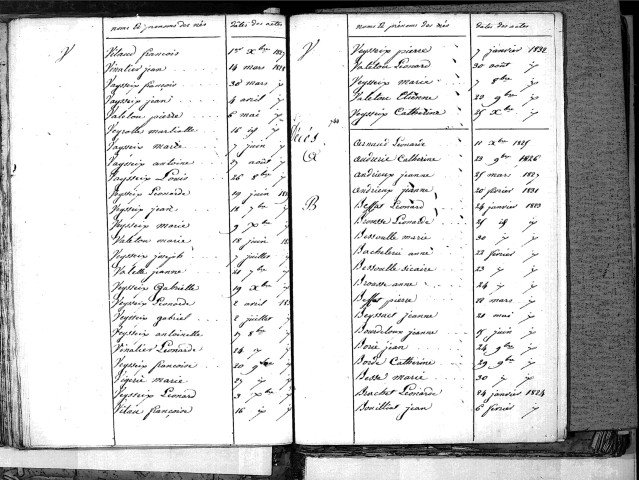 noms & prénoms des nés Dates des actes
V Vilaud françois 1er Xbre
Vinatier jean 14 mars
Vayssex françois 30 mars y
Vaysseix jean 4 avril y
Valeton pierre 6 mai y
Veyrotte martialle 16 id y
Vaysseix marie 7 juin y
Vaysseix antoine août y
Vaysseix Louis 26 8bre y
Veysseix Léonarde 19 juin
Veysseix jean 18 7bre y
Veysseix marie 9 Xbre y
Valeton marie 18 juin
Veysseix joseph 7 juillet y
Valette jeanne 11 7bre y
Veysseix Gabrielle 19 Xbre y
Veysseix Léonarde 2 avril
Veysseix gabriel 2 juillet y
Veysseix antoinette 19 8bre y
Vinatier Léonarde 24 y y
Veysseix françoise 20 9bre y
Vigerie marie 27 y y
Veysseix Léonard 3 Xbre y
Vilau françoise 16 y y
noms & prénoms des nés Dates des actes
V Veysseix pierre 7 janvier 1832
Valeton Léonard 30 août y
Veysseix marie 7 8bre y
Valetou Etienne 20 9bre y
Veysseix Catherine 25 Xbre y
A Armand Léonarde 11 Xbre 1825
Audurie Catherine 23 9bre 1826
Andrieux jeanne 25 mars 1827
Andrieux jeanne 20 février 1831
B Beffat Léonard 24 janvier 1823
Brousse Léonarde 25 id y
Bessoulle marie 30 y y
Bachelerie anne 22 février y
Bessoulle sicaire 23 y y
Brousse anne 24 y y
Beffat pierre 22 mars y
Beyssat jeanne 21 mai y
Bourdeloux jeanne 15 juin y
Borie jean 24 9bre y
Borde Catherine 29 9bre y
Besse marie 30 y y
Brachet Léonarde 24 janvier 1824
Bouilliat jean 6 février y